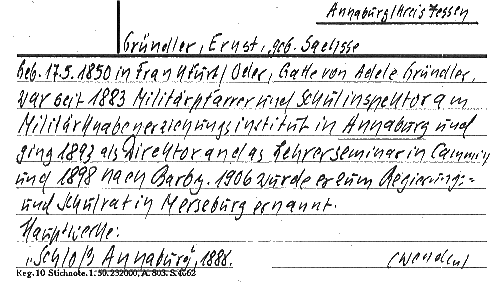 Annaburg/Kreis Jessen
Gründler, Ernst, geb. Saelisse
Geb. 17.5.1850 in Frankfurt/Oder, Gatte von Adele Gründler,
war seit 1883 Militärpfarrer und Schulinspektor am
Militärknabenerziehungsinstitut in Annaburg und
ging 1893 als Direktor an das Lehrerseminar in Cammin
und 1898 nach Barby. 1906 wurde er zum Regierungs-
und Schulrat in Merseburg ernannt.
Hauptwerke:
"Schloß Annaburg", 1888.
(wenden)
Keg. 10 Stichnote. 1. 50. 232000, A. 803. S.